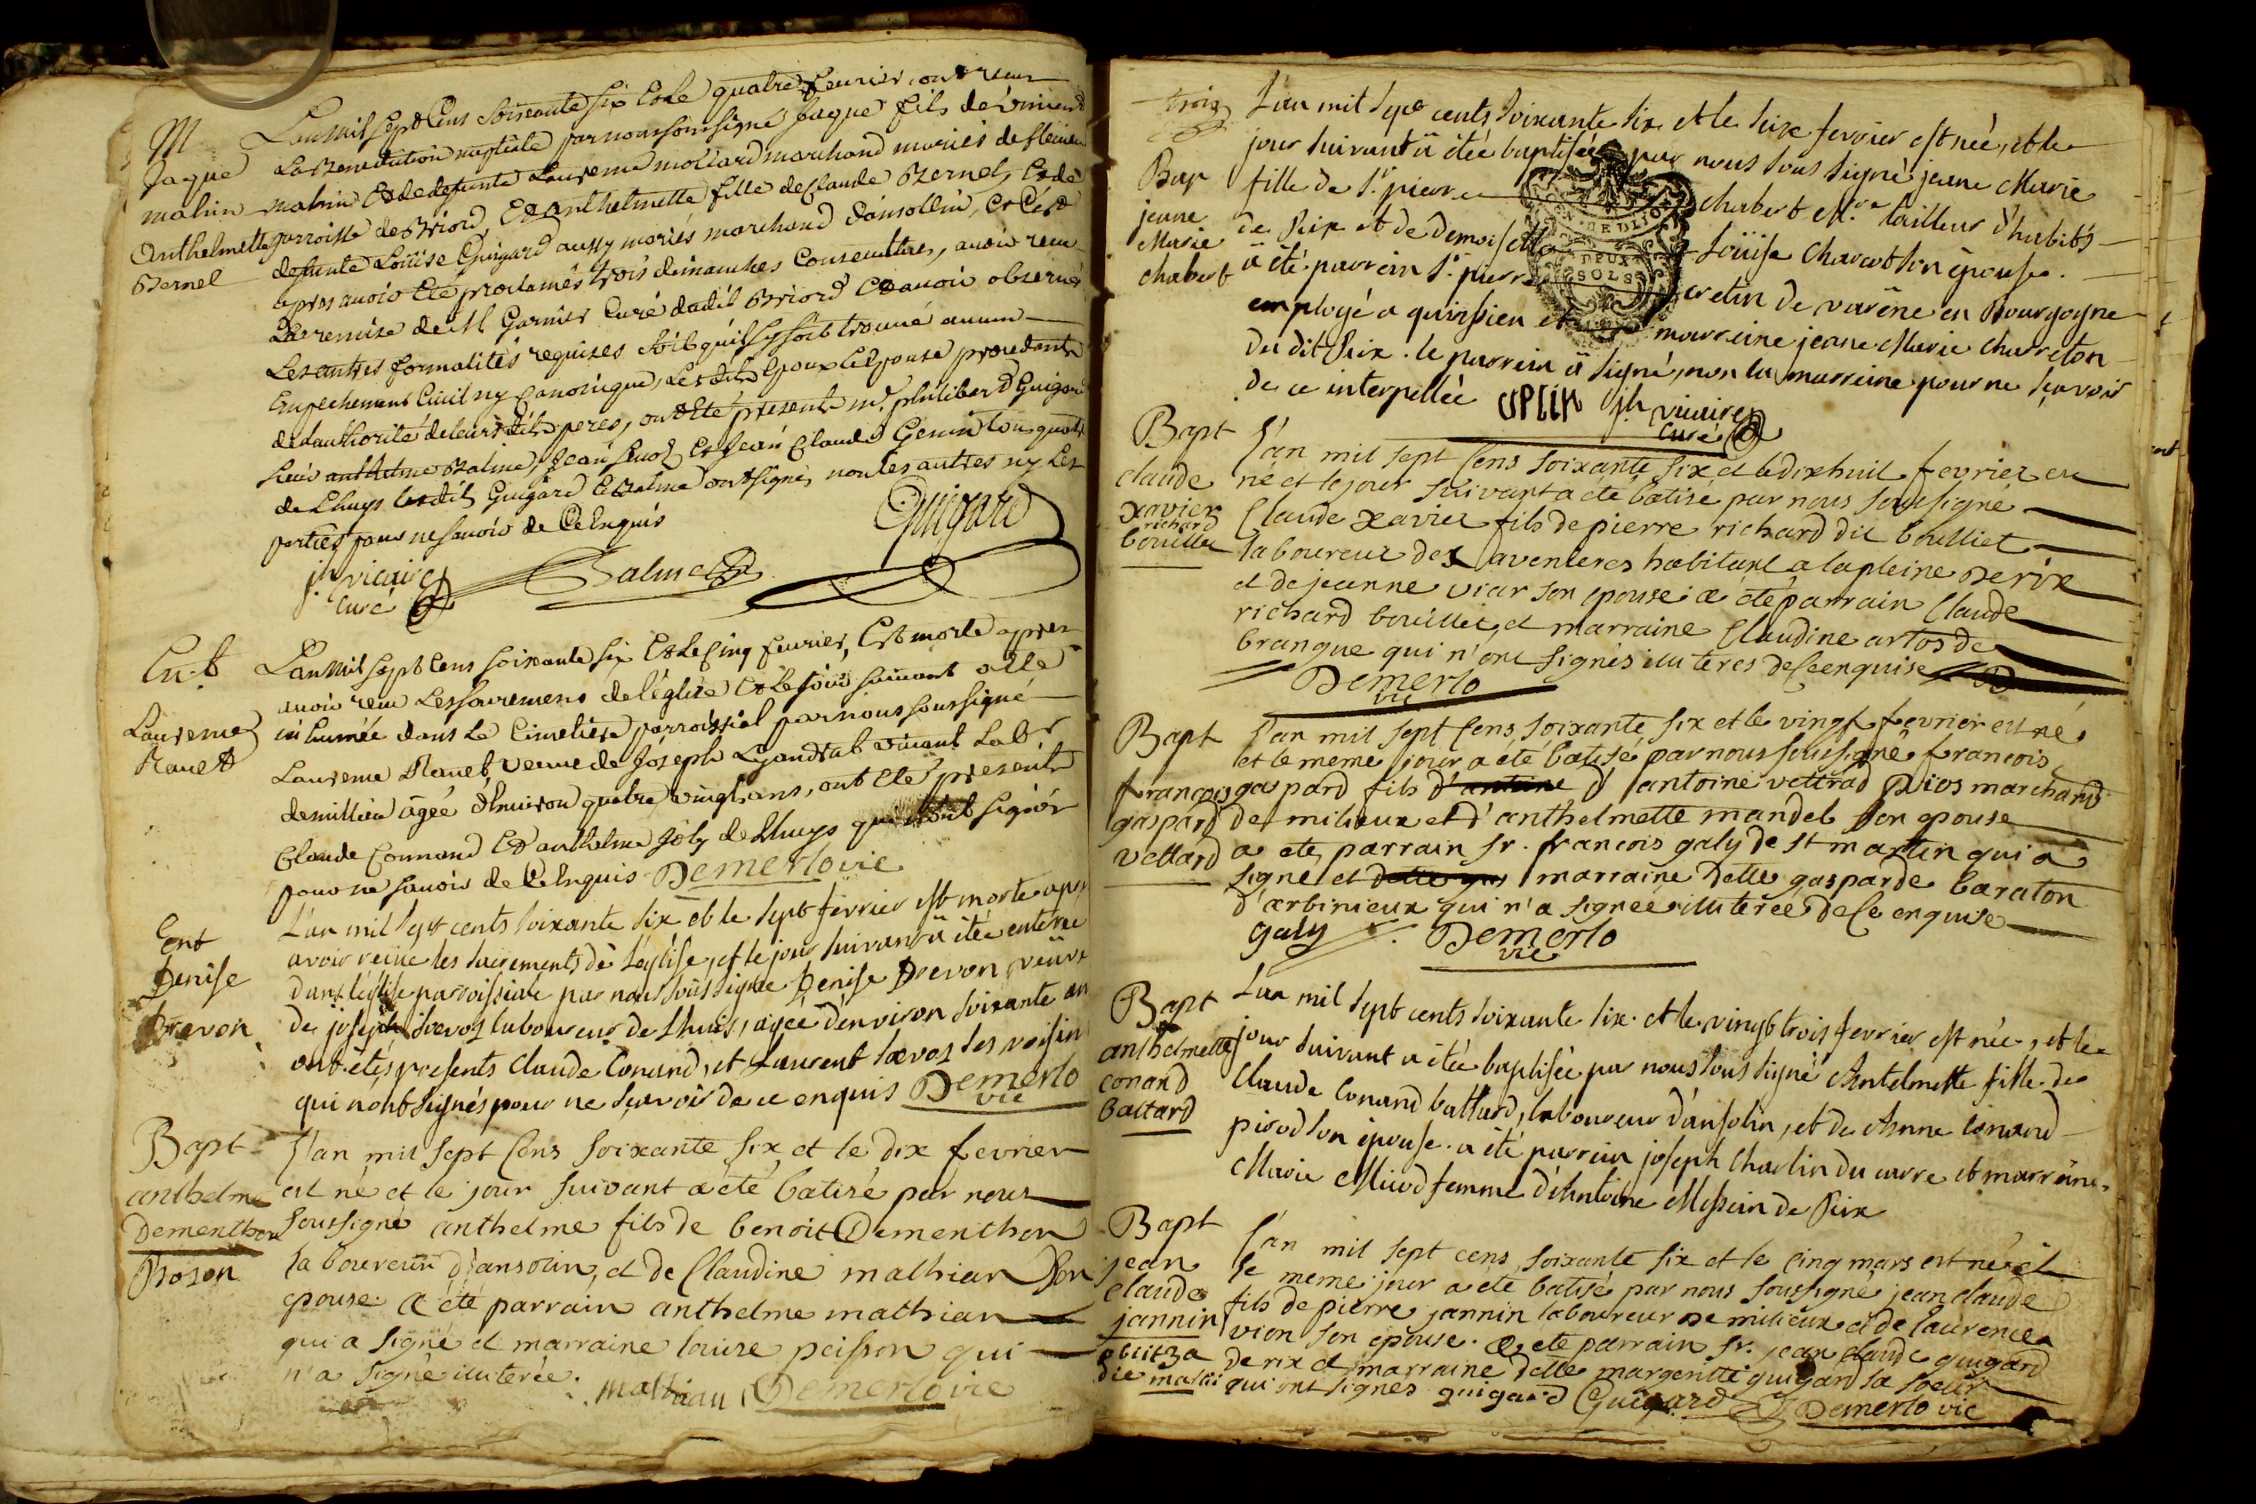 M
Jaque
mathin
Anthelmette
Bernel
L'an mil sept cens soixante six et le quatre fevrier ont reçu
La Benediction nuptiale par nous soussigné Jaque fils de vincend
mathin et de defunte Laurence mollard marchand mariés de
parroisse de Briord, Et Anthelmette fille de Claude Bernel, et de
defunte Loüise Guigard aussy mariés marchand d'ansollin, et c'est
apres avoir Eté proclamés trois dimanches Consecutives, avoir reçu
La remise de M Garnier Curé dudit Briord Et avoir observé
Les autres formalités requises sans qu'il sy soit trouvé aucun
Empechement Civil ny Canonique, Lesdits Epoux Et Epouse procedants
de L'authorité de leursdits peres, ont Eté presents mr. philiberd Guigard
sieur anthelme Balme, Jean et Jean Claude Genin tous quatre
de Lhuys lesdits Guigard et Balme ont signé, non les autres ny Les
parties pour ne savoir de Ce Enquis
Guigard
jh vicaire
Curé
Balme
Ent
Laurence
Planet
L'an mil sept Cens soixante six Et Le Cinq fevrier, Est morte apres
avoir recu Les sacremens de l'église Et Le jour suivant a Eté
inhumée dans Le Cimetiere parroissial par nous soussigné
Laurence Planet, veuve de Joseph vivant Labr
de millieu agée d'Environ quatre vingts ans, ont Eté presents
Claude Connand Et anthelme Joly de Lhuys qui n'ont signér
pour ne savoir de Ce Enquis Demerlo vic
Ent
Denise
Drevon
L'an mil sept cents soixante six et le sept fevrier est morte après
avoir reçue les sacrements de l'église, et le jour suivant a étée enterrée
dans l'église parroissiale par nous soussigné Denise Drevon veuve
de joseph laboureur de Lhuis, agée d'environ soixante an
ont étés presents Claude Conand, et Laurent ses voisins
qui n'ont signés pour ne sçavoir de ce enquis Demerlo
vic
Bapt
anthelme
Dementhon
Bozon
L'an mil sept Cens soixante six et le dix fevrier
est né et le jour suivant a eté batisé par nous
soussigné anthelme fils de benoit Dementhon
laboureur d'ansolin, et de Claudine mathian son
epouse. a eté parrain anthelme mathian
qui a signé et marraine louise poisson qui
n'a signé illiterée.
mathian Demerlo vic
trois
Bap
jeane
Marie
chabert
L'an mil sept cents soixante six et le seize fevrier est née, et le
jour suivant a étée baptisée par nous sous signé jeane Marie
fille de Sr. pierre chabert Mre. tailleur d'habits
de Rix et de Demoiselle Loüise Charcot son épouse.
a été parrein Sr. pierre cretin de varêne en Bourgogne
employé a quirissieu et marreine jeane Marie Charreton
du dit Rix. le parrein a signé, non la marreine pour ne sçavoir
de ce interpellée
DEUX
SOLS
jh vicaire
Curé
Bapt
Claude
xavier
richard
bouillet
L'an mil sept Cens soixante six et le dix huit fevrier est
né et le jour suivant a été batisé par nous soussigné
Claude xavier fils de pierre richard dit boulliet
laboureur des aventeres habitant a la pleine de rix
et de jeanne viar son epouse a eté parrain Claude
richard bouillet, et marraine Claudine artos de
brangue qui n'ont signés illiterés de Ce enquise
Demerlo
vic
Bapt
françois
gaspard
Vettard
L'an mil sept Cens soixante six et le vingt fevrier est né
et le meme jour a eté batisé par nous soussigné francois
gaspard fils d'antoine d'antoine vettrad Rios marchand
de milieux et d'anthelmette mandel son epouse
a eté parrain sr. francois galy de st martin qui a
signé et marraine Delle gasparde baraton
d'arbinieux qui n'a signée illiterée de Ce enquise
galy Demerlo
vic
Bapt
anthelmette
Conard
battard
L'an mil sept cents soixante six. et le vingt trois fevrier est née, et le
jour suivant a étée baptisée par nous sous signé Antelmette fille de
Claude Conand battard, laboureur d'ansolin, et de Anne Conand
pirod son épouse. a été parrein joseph Charlin du carre et marreine
Marie femme d'Antoine Messein de Rix
Bapt
jean
Claude
jannin
obiit 3a
die
L'an mil sept cens soixante six et le cinq mars est né et
le meme jour a eté batisé par nous soussigné jean claude
fils de pierre jannin laboureur de milieux et de laurence
vion son epouse. a eté parrain sr. jean claude guigard
de rix et marraine delle margeritte guigard sa soeur
qui ont signés guigard Guigard Demerlo vic